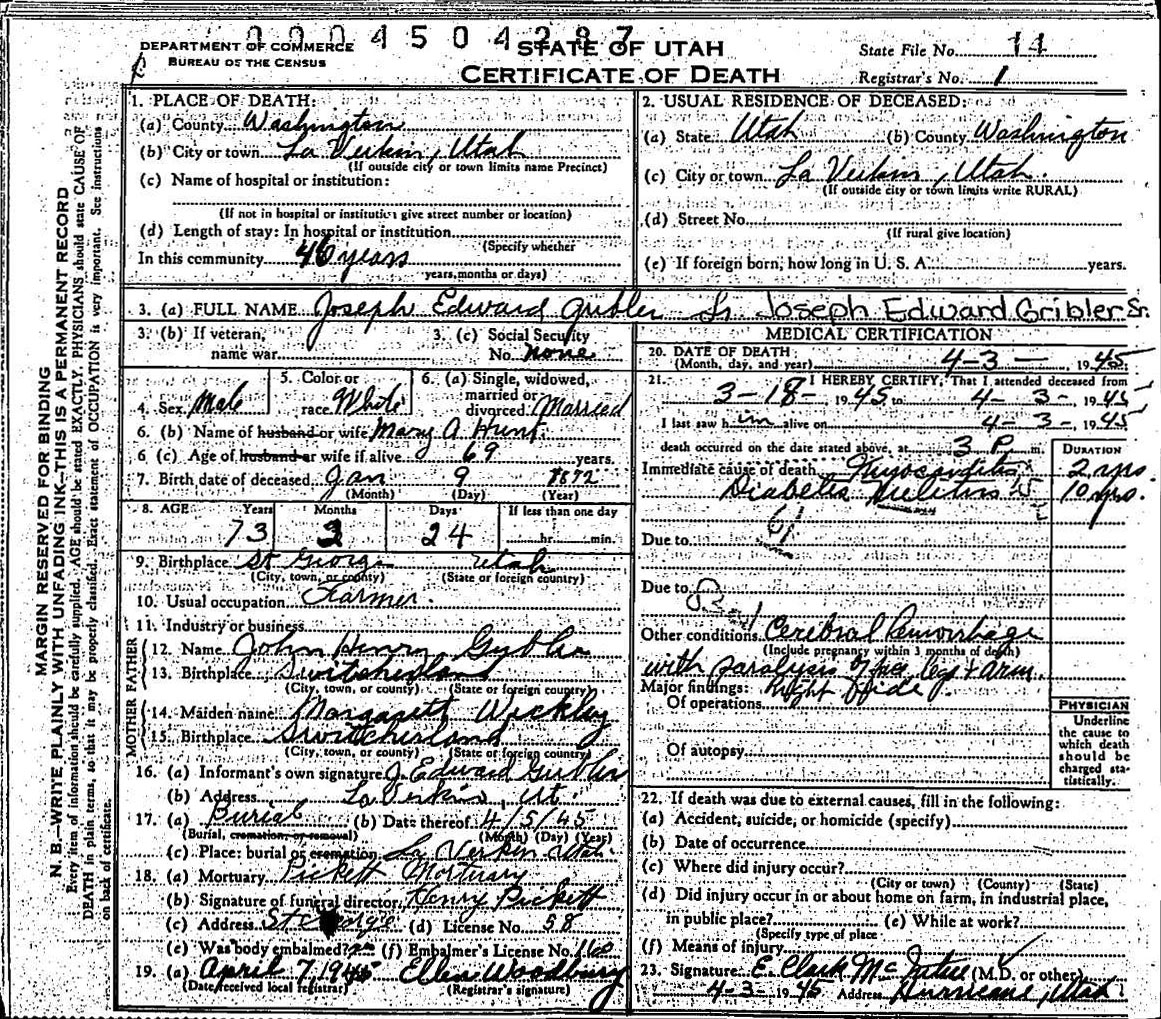 0004504287
DEPARTMENT OF COMMERCE
BUREAU OF THE CENSUS
STATE OF UTAH
CERTIFICATE OF DEATH
State File No. 14
Registrar's No. 1
MARGIN RESERVED FOR BINDING
N. B.—WRITE PLAINLY WITH UNFADING INK—THIS IS A PERMANENT RECORD
Every item of information should be carefully supplied. AGE should be stated EXACTLY. PHYSICIANS should state CAUSE OF
DEATH in plain terms, so that it may be properly classified. Exact statement of OCCUPATION is very important. See instructions
on back of certificate.
1. PLACE OF DEATH:
(a) County Washington
(b) City or town La Verkin, Utah
(If outside city or town limits name Precinct)
(c) Name of hospital or institution:
(If not in hospital or institution give street number or location)
(d) Length of stay: In hospital or institution
(Specify whether
In this community 46 years
years, months or days)
2. USUAL RESIDENCE OF DECEASED:
(a) State Utah (b) County Washington
(c) City or town La Verkin, Utah.
(If outside city or town limits write RURAL)
(d) Street No.
(If rural give location)
(e) If foreign born, how long in U. S. A. years.
3. (a) FULL NAME Joseph Edward Gribler Sr Joseph Edward Gribler Sr.
3. (b) If veteran,
name war
3. (c) Social Security
No. None
4. Sex Male
5. Color or
race White
6. (a) Single, widowed,
married or
divorced Married
6. (b) Name of husband or wife Mary A Hunt
6 (c) Age of husband or wife if alive 69 years.
7. Birth date of deceased Jan 9 1872
(Month) (Day) (Year)
8. AGE Years Months Days If less than one day
73 2 24 hr. min.
9. Birthplace St George Utah
(City, town, or county) (State or foreign country)
10. Usual occupation Farmer
11. Industry or business
FATHER
12. Name John Henry Gubler
13. Birthplace Switcherland
(City, town, or county) (State or foreign country)
MOTHER
14. Maiden name Margarett Wickley
15. Birthplace Switcherland
(City, town, or county) (State or foreign country)
16. (a) Informant's own signature J. Edward Gubler
(b) Address La Verkin, Ut.
17. (a) Burial (b) Date thereof 4/5/45
(Burial, cremation, or removal) (Month) (Day) (Year)
(c) Place: burial or cremation La Verkin Utah
18. (a) Mortuary Pickett Mortuary
(b) Signature of funeral director Henry Pickett
(c) Address St George (d) License No. 58
(e) Was body embalmed? (f) Embalmer's License No. 160
19. (a) April 7, 1945 Ellen Woodbury
(Date received local registrar) (Registrar's signature)
MEDICAL CERTIFICATION
20. DATE OF DEATH
(Month, day, and year) 4-3- , 1945
21. I HEREBY CERTIFY, That I attended deceased from
3-18- 1945 to 4-3-, 1945
I last saw him alive on 4-3-, 1945
death occurred on the date stated above, at 3 P. m.
DURATION
Immediate cause of death Myocarditis 2 yrs
Diabetis Melitus 10 yrs.
61
Due to
Due to
Other conditions Cerebral hemorrhage
(Include pregnancy within 3 months of death)
with paralysis of face leg & arm
Major findings: Right side
Of operations
Of autopsy
PHYSICIAN
Underline
the cause to
which death
should be
charged sta-
tistically.
22. If death was due to external causes, fill in the following:
(a) Accident, suicide, or homicide (specify)
(b) Date of occurrence
(c) Where did injury occur?
(City or town) (County) (State)
(d) Did injury occur in or about home on farm, in industrial place,
in public place? (e) While at work?
(Specify type of place
(f) Means of injury
23. Signature E. Clark McIntire (M.D. or other)
4-3- 1945 Address Hurricane, Utah